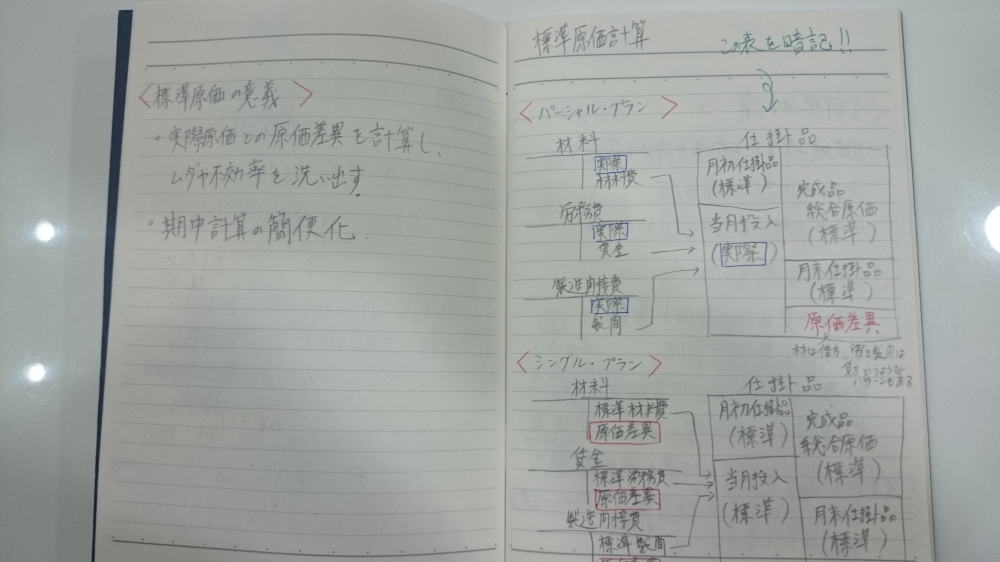 〈標準原価の意義〉
・実際原価との原価差異を計算し、
ムダや不効率を洗い出す。
・期中計算の簡便化
標準原価計算
この表を暗記!!
〈パーシャル・プラン〉
材料
実際
材料費
労務費
実際
賃金
製造間接費
実際
製間
仕掛品
月初仕掛品
(標準)
当月投入
(実際)
完成品
総合原価
(標準)
月末仕掛品
(標準)
原価差異
材は借方、労と製間は
貸方というような
パターンもある
〈シングル・プラン〉
材料
標準材料費
原価差異
賃金
標準労務費
原価差異
製造間接費
標準製間
仕掛品
月初仕掛品
(標準)
当月投入
(標準)
完成品
総合原価
(標準)
月末仕掛品
(標準)